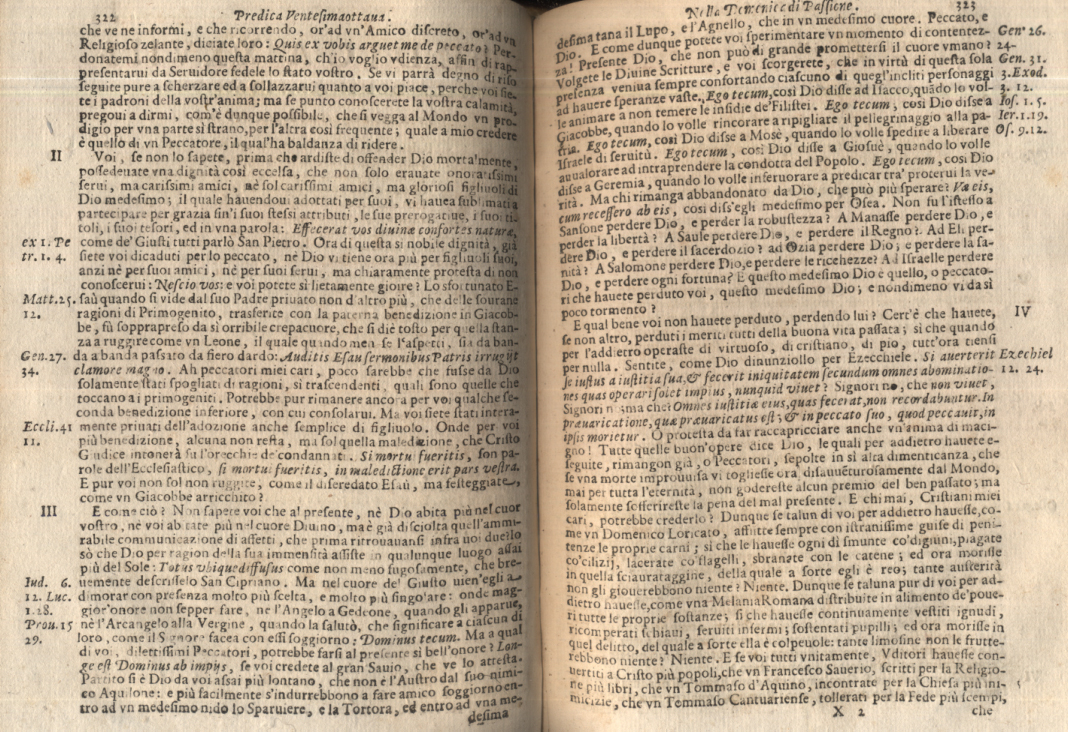 322 Predica Ventesimaottaua.
che ve ne informi, e che ricorrendo, or'ad vn'Amico discreto, or'ad vn
Religioso zelante, diciate loro: Quis ex vobis arguet me de peccato? Per-
donatemi nondimeno questa mattina, ch'io voglio vdienza, affin di rap-
presentarui da Seruidore fedele lo stato vostro. Se vi parrà degno di riso
seguite pure a scherzare ed a sollazzarui quanto a voi piace, perche voi sie-
te i padroni della vostr'anima; ma se punto conoscerete la vostra calamità,
pregoui a dirmi, com'è dunque possibile, che si vegga al Mondo vn pro-
digio per vna parte sì strano, per l'altra così frequente; quale a mio credere
è quello di vn Peccatore, il qual'ha baldanza di ridere.
II Voi, se non lo sapete, prima che ardiste di offender Dio mortalmente,
possedeuate vna dignità così eccelsa, che non solo erauate onoratissimi
serui, ma carissimi amici, nè sol carissimi amici, ma gloriosi figliuoli di
Dio medesimo; il quale hauendoui adottati per suoi, vi hauea sublimati a
partecipare per grazia sin'i suoi stessi attributi, le sue prerogatiue, i suoi ti-
toli, i suoi tesori, ed in vna parola: Effecerat vos diuinæ confortes naturæ,
ex 1. Pe come de' Giusti tutti parlò San Pietro. Ora di questa sì nobile dignità, già
tr. 1. 4. siete voi dicaduti per lo peccato, nè Dio vi tiene ora più per figliuoli suoi,
anzi nè per suoi amici, nè per suoi serui, ma chiaramente protesta di non
conoscerui: Nescio vos: e voi potete sì lietamente gioire? Lo sfortunato E-
Matt.25. saù quando si vide dal suo Padre priuato non d'altro più, che delle sourane
12. ragioni di Primogenito, trasferite con la paterna benedizione in Giacob-
be, fù sopprapreso da sì orribile crepacuore, che si diè tosto per quella stan-
za a ruggire come vn Leone, il quale quando men se l'aspetti, sia da ban-
Gen.27. da a banda passato da fiero dardo: Auditis Esau sermonibus Patris irrugijt
34. clamore magno. Ah peccatori miei cari, poco sarebbe che fusse da Dio
solamente stati spogliati di ragioni, sì trascendenti, quali sono quelle che
toccano a i primogeniti. Potrebbe pur rimanere ancora per voi qualche se-
conda benedizione inferiore, con cui consolarui. Ma voi siete stati intera-
Eccli.41 mente priuati dell'adozione anche semplice di figliuolo. Onde per voi
11. più benedizione, alcuna non resta, ma sol quella maledizione, che Cristo
Giudice intonerà su l'orecchie de' condannati. Si mortui fueritis, son pa-
role dell'Ecclesiastico, si mortui fueritis, in maledictione erit pars vestra.
E pur voi non sol non ruggite, come il diseredato Esaù, ma festeggiate,
come vn Giacobbe arricchito?
III E come ciò? Non sapete voi che al presente, nè Dio abita più nel cuor
vostro, nè voi abitate più nel cuore Diuino, ma è già disciolta quell'ammi-
rabile communicazione di affetti, che prima ritrouauansi infra uoi due? Io
sò che Dio per ragion della sua immensità assiste in qualunque luogo assai
più del Sole: Totus vbique diffusus come non meno fugosamente, che bre-
Iud. 6. uemente descriffelo San Cipriano. Ma nel cuore de' Giusto uien'egli a
12. Luc. dimorar con presenza molto più scelta, e molto più singolare: onde mag-
1.28. gior'onore non sepper fare, ne l'Angelo a Gedeone, quando gli apparue,
Prou.15 nè l'Arcangelo alla Vergine, quando la salutò, che significare a ciascun di
29. loro, come il Signore facea con essi soggiorno: Dominus tecum. Ma a qual
di voi, dilettissimi Peccatori, potrebbe farsi al presente sì bell'onore? Lon-
ge est Dominus ab impijs, se voi credete al gran Sauio, che ve lo attesta.
Partito si è Dio da voi assai più lontano, che non è l'Austro dal suo nimi-
co Aquilone: e più facilmente s'indurrebbono a fare amico soggiorno en-
tro ad vn medesimo nido lo Sparuiere, e la Tortora, ed entro ad vna me-
desima
Nella Domenica di Passione. 323
desima tana il Lupo, e l'Agnello, che in vn medesimo cuore. Peccato, e
Dio. E come dunque potete voi sperimentare vn momento di contentez- Gen 26.
za! Presente Dio, che non può di grande promettersi il cuore vmano? 24-
Volgete le Diuine Scritture, e voi scorgerete, che in virtù di questa sola Gen. 31.
presenza veniua sempre confortando ciascuno di quegl'incliti personaggi 3. Exod.
ad hauere speranze vaste. Ego tecum, così Dio disse ad Isacco, quãdo lo vol- 3. 12.
le animare a non temere le insidie de' Filistei. Ego tecum, così Dio disse a Ios. 1. 5.
Giacobbe, quando lo volle rincorare a ripigliare il pellegrinaggio alla pa- Ier.1.19.
tria. Ego tecum, così Dio disse a Mosè, quando lo volle spedire a liberare Os. 9.12.
Israele di seruitù. Ego tecum, così Dio disse a Giosuè, quando lo volle
aualorare ad intraprendere la condotta del Popolo. Ego tecum, così Dio
disse a Geremia, quando lo volle inferuorare a predicar tra' proterui la ve-
rità. Ma chi rimanga abbandonato da Dio, che può più sperare? Væ eis,
cum recessero ab eis, così diss'egli medesimo per Osea. Non fu l'istesso a
Sansone perdere Dio, e perder la robustezza? A Manasse perdere Dio, e
perder la libertà? A Saule perdere Dio, e perdere il Regno? Ad Eli per-
dere Dio, e perdere il sacerdozio? ad Ozia perdere Dio; e perdere la sa-
nità? A Salomone perdere Dio, e perdere le ricchezze? Ad Israelle perdere
Dio, e perdere ogni fortuna? E questo medesimo Dio è quello, o peccato-
ri che hauete perduto voi, questo medesimo Dio; e nondimeno vi dà sì
poco tormento?
E qual bene voi non hauete perduto, perdendo lui? Cert'è che hauete, IV
se non altro, perduti i meriti tutti della buona vita passata; sì che quando
per l'addietro operaste di virtuoso, di cristiano, di pio, tutt'ora tiensi
per nulla. Sentite, come Dio dinunziollo per Ezecchiele. Si auerterit Ezechiel
se iustus a iustitia sua, & fecerit iniquitatem secundum omnes abominatio- 12. 24.
nes quas operari solet impius, nunquid viuet? Signori no, che non viuet,
Signori no; ma che? Omnes iustitiæ eius, quas fecerat, non recordabuntur. In
præuaricatione, qua præuaricatus est; & in peccato suo, quod peccauit, in
ipsis morietur. O protesta da far raccapricciare anche vn'anima di maci-
gno! Tutte quelle buon'opere dice Dio, le quali per addietro hauete e-
seguite, rimangon già, o Peccatori, sepolte in sì alta dimenticanza, che
se vna morte improuisa vi togliesse ora disauuēturosamente dal Mondo,
mai per tutta l'eternità, non godereste alcun premio del ben passato; ma
solamente sofferireste la pena del mal presente. E chi mai, Cristiani miei
cari, potrebbe crederlo? Dunque se talun di voi per addietro hauesse, co-
me vn Domenico Loricato, afflitte sempre con istranissime guise di peni-
tenze le proprie carni; sì che le hauesse ogni di smunte co' digiuni, piagate
co' cilizij, lacerate co' flagelli, sbranate con le catene; ed ora morisse
in quella sciaurataggine, della quale a sorte egli è reo; tante austerità
non gli giouerebbono niente? Niente. Dunque se taluna pur di voi per ad-
dietro hauesse, come vna Melania Romana distribuite in alimento de' poue-
ri tutte le proprie sostanze; sì che hauesse continuamente vestiti ignudi,
ricomperati schiaui, seruiti infermi; sostentati pupilli; ed ora morisse in
quel delitto, del quale a sorte ella è colpeuole: tante limosine non le frutte-
rebbono niente? Niente. E se voi tutti vnitamente, Vditori hauesse con-
uertiti a Cristo più popoli, che vn Francesco Sauerio, scritti per la Religio-
ne più libri, che vn Tommaso d'Aquino, incontrate per la Chiesa più ini-
micizie, che vn Tommaso Cantuariense, tollerati per la Fede più scempi,
X 2 che